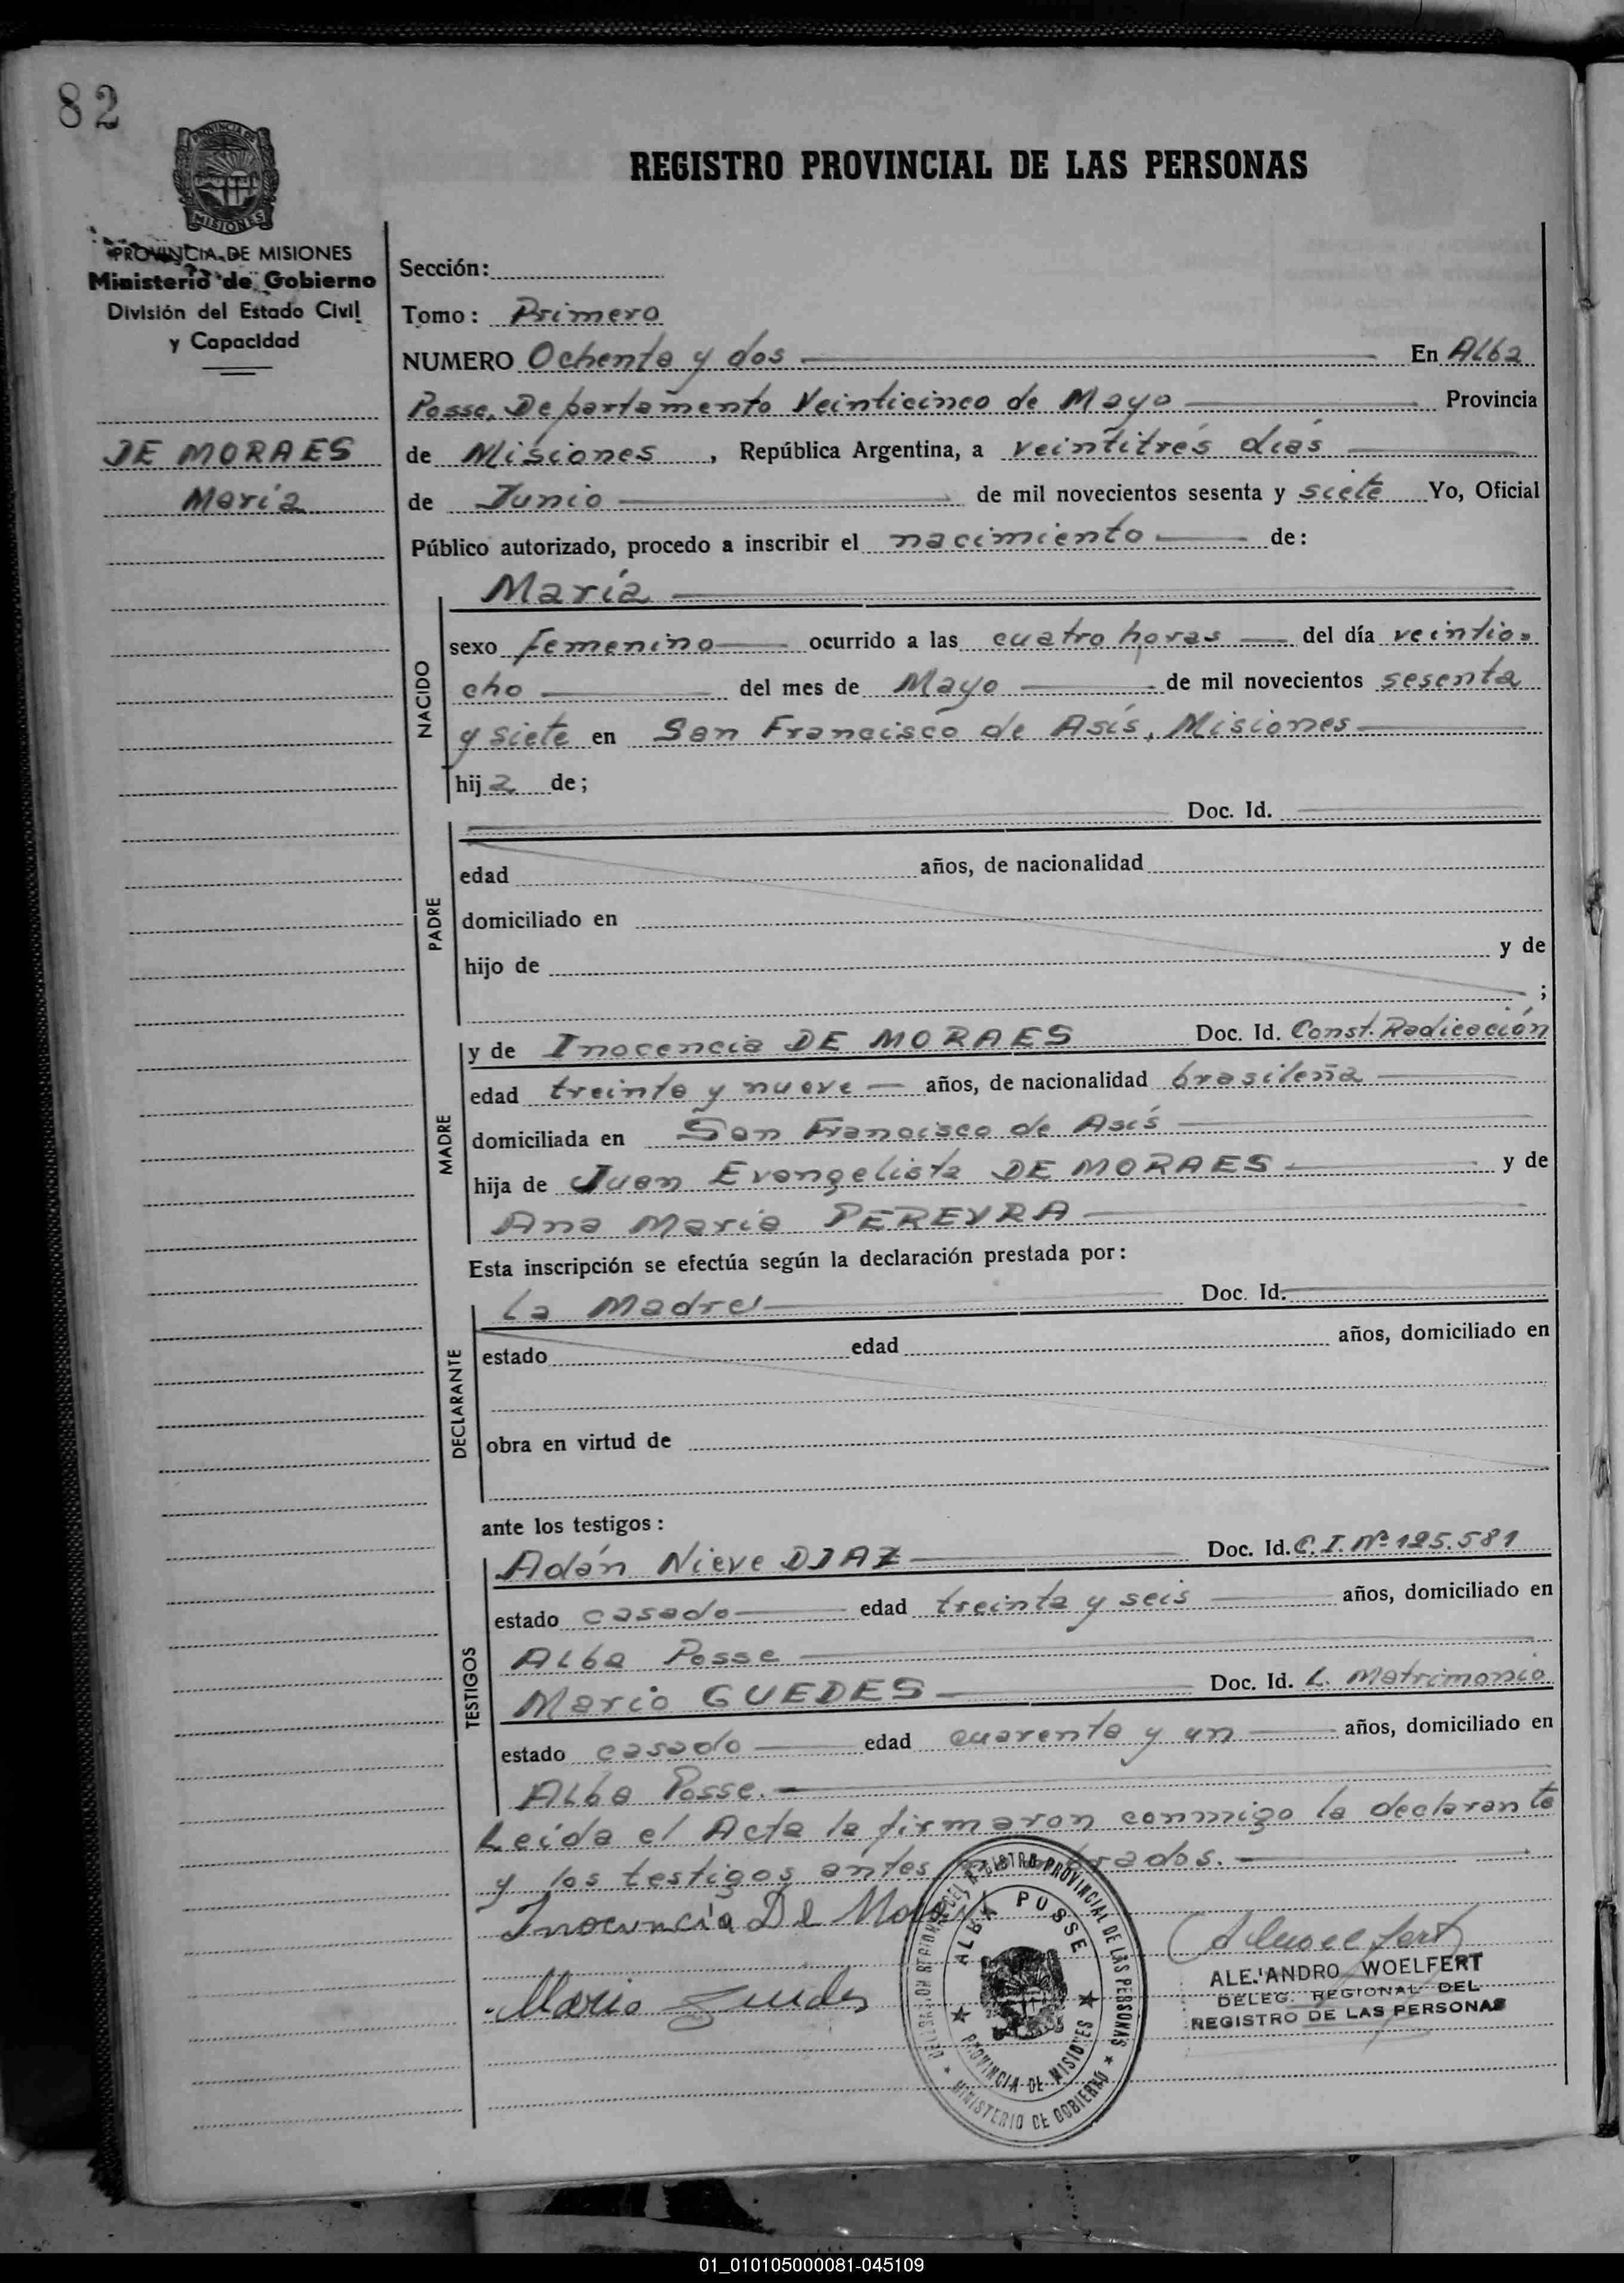 82
PROVINCIA DE
MISIONES
REGISTRO PROVINCIAL DE LAS PERSONAS
PROVINCIA DE MISIONES
Ministerio de Gobierno
División del Estado Civil
y Capacidad
DE MORAES
María
Sección:
Tomo: Primero
NUMERO Ochenta y dos En Alba
Posse, Departamento Veinticinco de Mayo Provincia
de Misiones, República Argentina, a veintitrés días
de Junio de mil novecientos sesenta y siete Yo, Oficial
Público autorizado, procedo a inscribir el nacimiento de:
NACIDO
María
sexo femenino ocurrido a las cuatro horas del día veintio=
cho del mes de Mayo de mil novecientos sesenta
y siete en San Francisco de Asís, Misiones
hija de;
PADRE
Doc. Id.
edad años, de nacionalidad
domiciliado en
hijo de y de
;
MADRE
y de Inocencia DE MORAES Doc. Id. Const. Radicación
edad treinta y nueve años, de nacionalidad brasileña
domiciliada en San Francisco de Asís
hija de Juan Evangelista DE MORAES y de
Ana María PEREYRA
Esta inscripción se efectúa según la declaración prestada por:
DECLARANTE
La Madre Doc. Id.
estado edad años, domiciliado en
obra en virtud de
ante los testigos:
TESTIGOS
Adán Nieve DIAZ Doc. Id. C.I. Nº 125.581
estado casado edad treinta y seis años, domiciliado en
Alba Posse
Mario GUEDES Doc. Id. L. Matrimonio
estado casado edad cuarenta y un años, domiciliado en
Alba Posse.
Leída el Acta la firmaron conmigo la declarante
y los testigos antes
Inocencia De
Mario Guedes
REGISTRO PROVINCIAL DE LAS PERSONAS
ALBA POSSE
PROVINCIA DE MISIONES
MINISTERIO DE GOBIERNO
ALEJANDRO WOELFERT
DELEG. REGIONAL DEL
REGISTRO DE LAS PERSONAS
01_010105000081-045109